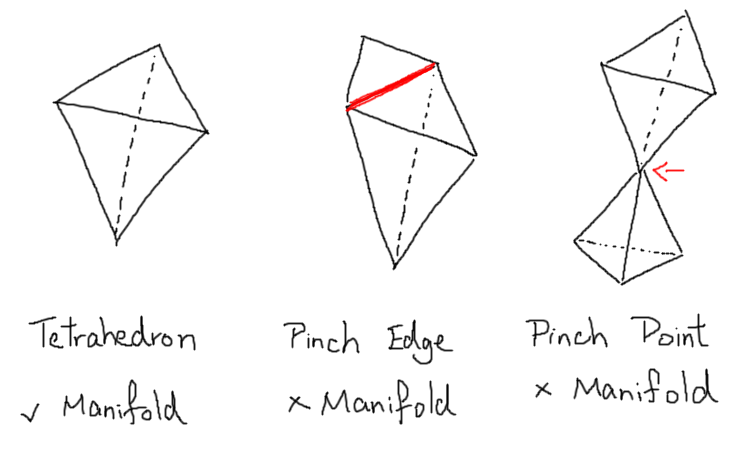 Tetrahedron
✓ Manifold
Pinch Edge
× Manifold
Pinch Point
× Manifold